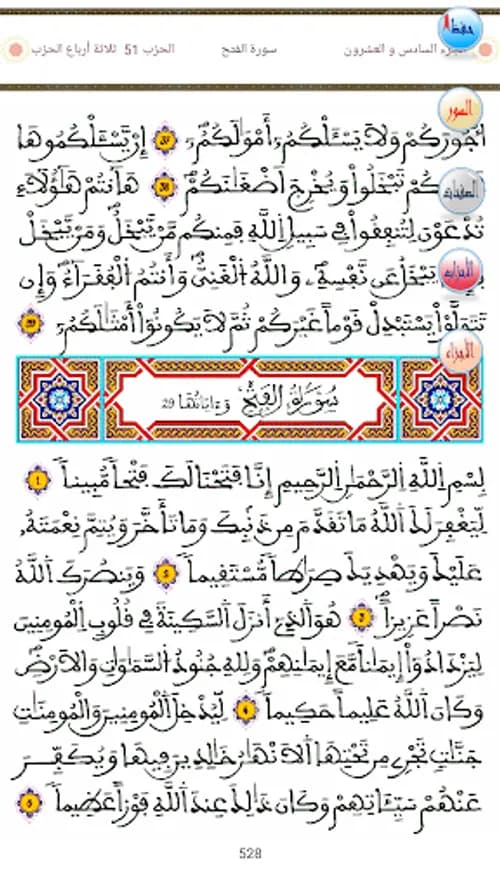 حفظ
الجزء السادس و العشرون
سورة الفتح
الحزب 51 ثلاثة أرباع الحزب
السور
الصفحات
الأحزاب
الأجزاء
أُجُورَكُمْ وَلَا يَسْـَٔلْكُمُۥٓ أَمْوَٰلَكُمُۥٓ 37 إِنْ يَّسْـَٔلْكُمُوهَا
كُمْ تَبْخَلُواْ وَيُخْرِجَ اَضْغَٰنَكُمْ 38 هَآنتُمْ هَٰٓؤُلَآءِ
تُدْعَوْنَ لِتُنفِقُواْ فِے سَبِيلِ اِ۬للَّهِ فَمِنكُم مَّنْ يَّبْخَلُ وَمَنْ يَّبْخَلْ
يَبْخَلُ عَن نَّفْسِهِۦ وَاللَّهُ اُ۬لْغَنِيُّ وَأَنتُمُ اُ۬لْفُقَرَآءُ وَإِن
تَتَوَلَّوْاْ يَسْتَبْدِلْ قَوْماً غَيْرَكُمْ ثُمَّ لَا يَكُونُوٓاْ أَمْثَٰلَكُمُۥٓ 39
سُورَةُ اُ۬لْفَتْحِ وَءَايَاتُهَا 29
بِسْمِ اِ۬للَّهِ اِ۬لرَّحْمَٰنِ اِ۬لرَّحِيمِ إِنَّا فَتَحْنَا لَكَ فَتْحاً مُّبِيناً 1
لِّيَغْفِرَ لَكَ اَ۬للَّهُ مَا تَقَدَّمَ مِن ذَنۢبِكَ وَمَا تَأَخَّرَ وَيُتِمَّ نِعْمَتَهُۥ
عَلَيْكَ وَيَهْدِيَكَ صِرَٰطاً مُّسْتَقِيماً 2 وَيَنصُرَكَ اَ۬للَّهُ
نَصْراً عَزِيزاً 3 هُوَ اَ۬لذِےٓ أَنزَلَ اَ۬لسَّكِينَةَ فِے قُلُوبِ اِ۬لْمُومِنِينَ
لِيَزْدَادُوٓاْ إِيمَٰناً مَّعَ إِيمَٰنِهِمْ وَلِلهِ جُنُودُ اُ۬لسَّمَٰوَٰتِ وَالَارْضِ
وَكَانَ اَ۬للَّهُ عَلِيماً حَكِيماً 4 لِّيُدْخِلَ اَ۬لْمُومِنِينَ وَالْمُومِنَٰتِ
جَنَّٰتٍ تَجْرِے مِن تَحْتِهَا اَ۬لَانْهَٰرُ خَٰلِدِينَ فِيهَا وَيُكَفِّرَ
عَنْهُمْ سَيِّـَٔاتِهِمْ وَكَانَ ذَٰلِكَ عِندَ اَ۬للَّهِ فَوْزاً عَظِيماً 5
528